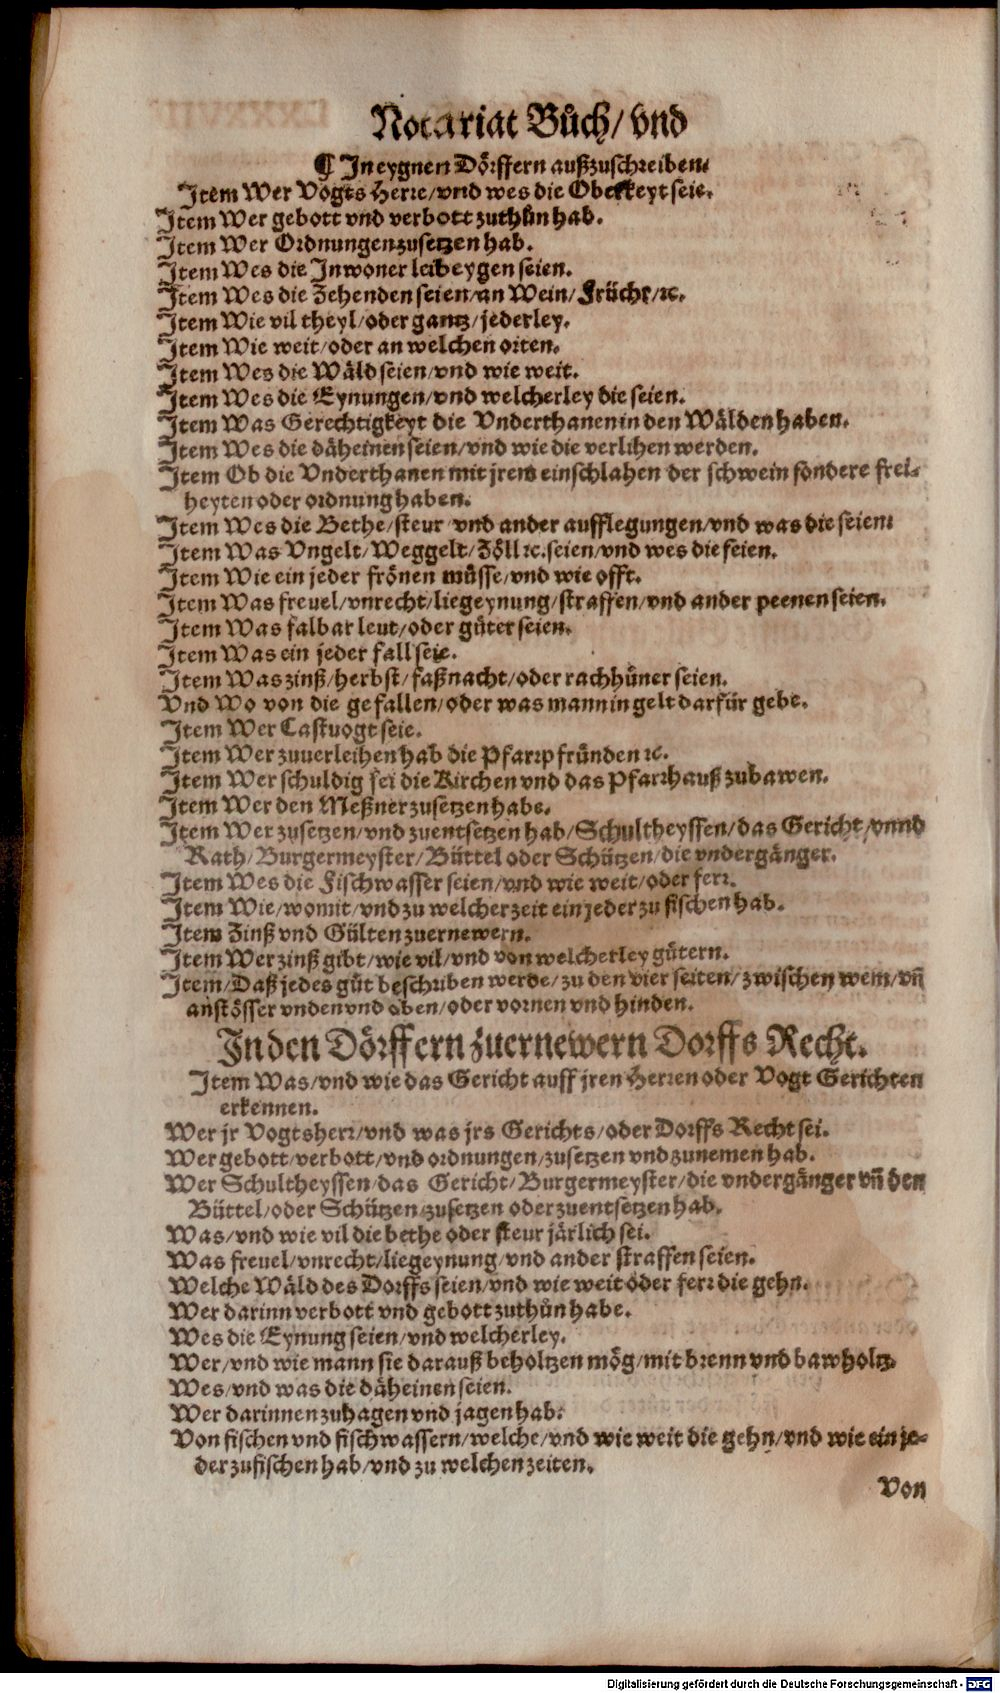 Notariat Bůch/ vnd
¶ In eygnen Dörffern außzuschreiben.
Item Wer Vogts Herre/ vnd wes die Oberkeyt seie.
Item Wer gebott vnd verbott zuthůn hab.
Item Wer Ordnungen zusetzen hab.
Item Wes die Inwoner leibeygen seien.
Item Wes die Zehenden seien/ an Wein/ Frücht/ ꝛc.
Item Wie vil theyl/ oder gantz/ jederley.
Item Wie weit/ oder an welchen orten.
Item Wes die Wäld seien/ vnd wie weit.
Item Wes die Eynungen/ vnd welcherley die seien.
Item Was Gerechtigkeyt die Vnderthanen in den Wälden haben.
Item Wes die däheinen seien/ vnd wie die verlihen werden.
Item Ob die Vnderthanen mit jrem einschlahen der schwein sondere frei-
heyten oder ordnung haben.
Item Wes die Bethe/ steur/ vnd ander aufflegungen/ vnd was die seien.
Item Was Vngelt/ Weggelt/ Zöll ꝛc. seien/ vnd wes die seien.
Item Wie ein jeder frönen müsse/ vnd wie offt.
Item Was freuel/ vnrecht/ liegeynung/ straffen/ vnd ander peenen seien.
Item Was falbar leut/ oder güter seien.
Item Was ein jeder fall seie.
Item Was zinß/ herbst/ faßnacht/ oder rachhüner seien.
Vnd Wo von die gefallen/ oder was mann in gelt darfür gebe.
Item Wer Castuogt seie.
Item Wer zuuerleihen hab die Pfarrpfründen ꝛc.
Item Wer schuldig sei die Kirchen vnd das Pfarrhauß zubawen.
Item Wer den Meßner zusetzen habe.
Item Wer zusetzen/ vnd zuentsetzen hab/ Schultheyssen/ das Gericht/ vnnd
Rath/ Burgermeyster/ Büttel oder Schützen/ die vndergänger.
Item Wes die Fischwasser seien/ vnd wie weit/ oder ferr.
Item Wie/ womit/ vnd zu welcher zeit ein jeder zu fischen hab.
Item Zinß vnd Gülten zuernewern.
Item Wer zinß gibt/ wie vil/ vnd von welcherley gütern.
Item/ Daß jedes gůt beschriben werde/ zu den vier seiten/ zwischen wem/ vñ
anstösser vnden vnd oben/ oder vornen vnd hinden.
In den Dörffern zuernewern Dorffs Recht.
Item Was/ vnd wie das Gericht auff jren Herren oder Vogt Gerichten
erkennen.
Wer jr Vogtsherr/ vnd was jrs Gerichts/ oder Dorffs Recht sei.
Wer gebott/ verbott/ vnd ordnungen/ zusetzen vnd zunemen hab.
Wer Schultheyssen/ das Gericht/ Burgermeyster/ die vndergänger vñ den
Büttel/ oder Schützen/ zusetzen oder zuentsetzen hab.
Was/ vnd wie vil die bethe oder steur järlich sei.
Was freuel/ vnrecht/ liegeynung/ vnd ander straffen seien.
Welche Wäld des Dorffs seien/ vnd wie weit oder ferr die gehn.
Wer darinn verbott vnd gebott zuthůn habe.
Wes die Eynung seien/ vnd welcherley.
Wer/ vnd wie mann sie darauß beholtzen mög/ mit brenn vnd bawholtz.
Wes/ vnd was die däheinen seien.
Wer darinnen zuhagen vnd jagen hab.
Von fischen vnd fischwassern/ welche/ vnd wie weit die gehn/ vnd wie ein je-
der zufischen hab/ vnd zu welchen zeiten.
Von
Digitalisierung gefördert durch die Deutsche Forschungsgemeinschaft - DFG